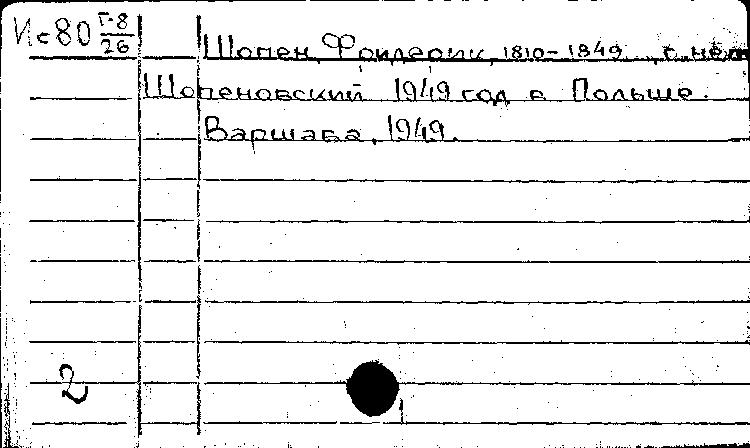 Ис80 Г-8/26
Шопен, Фридерик, 1810-1849. о нем
Шопеновский 1949 год в Польше.
Варшава, 1949.
2